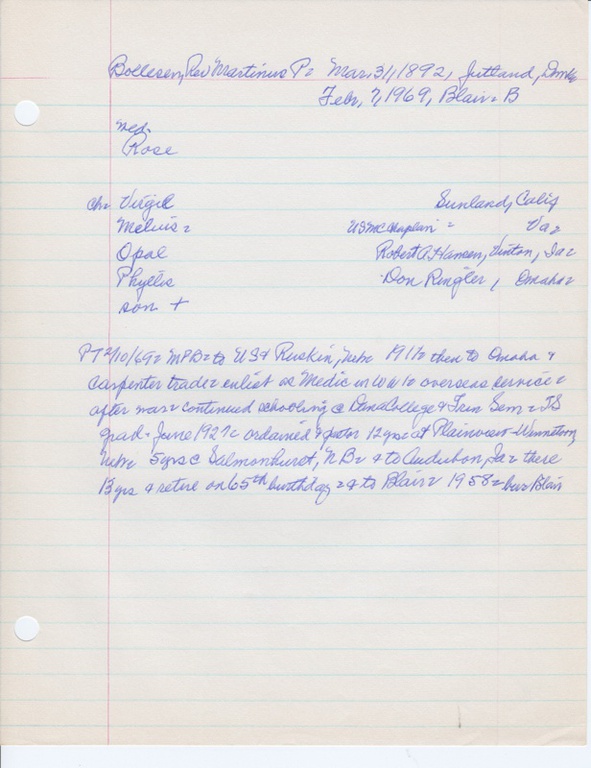 Bollesen, Rev Martinus P- Mar. 31, 1892, Jutland, Dmk
Feb. 7, 1969, Blair- B
med-
Rose
ch- Virgil Sunland, Calif
Melvis- USMC chaplain - Va-
Opal Robert A. Hansen, Vinton, Ia-
Phyllis Don Ringler, Omaha-
son +
PT 2/10/69- MPB- to US & Ruskin, Neb- 1911- then to Omaha &
carpenter trade- enlist as Medic in WW1- overseas service-
after war- continued schooling @ Dana College & Trin Sem- TS
grad- June 1927- ordained & pastor 12 yrs at Plainview-
Neb- 5 yrs @ Salmonhurst, NB- & to Audubon, Ia- there
13 yrs & retire on 65th birthday - & to Blair- 1958- bur Blair